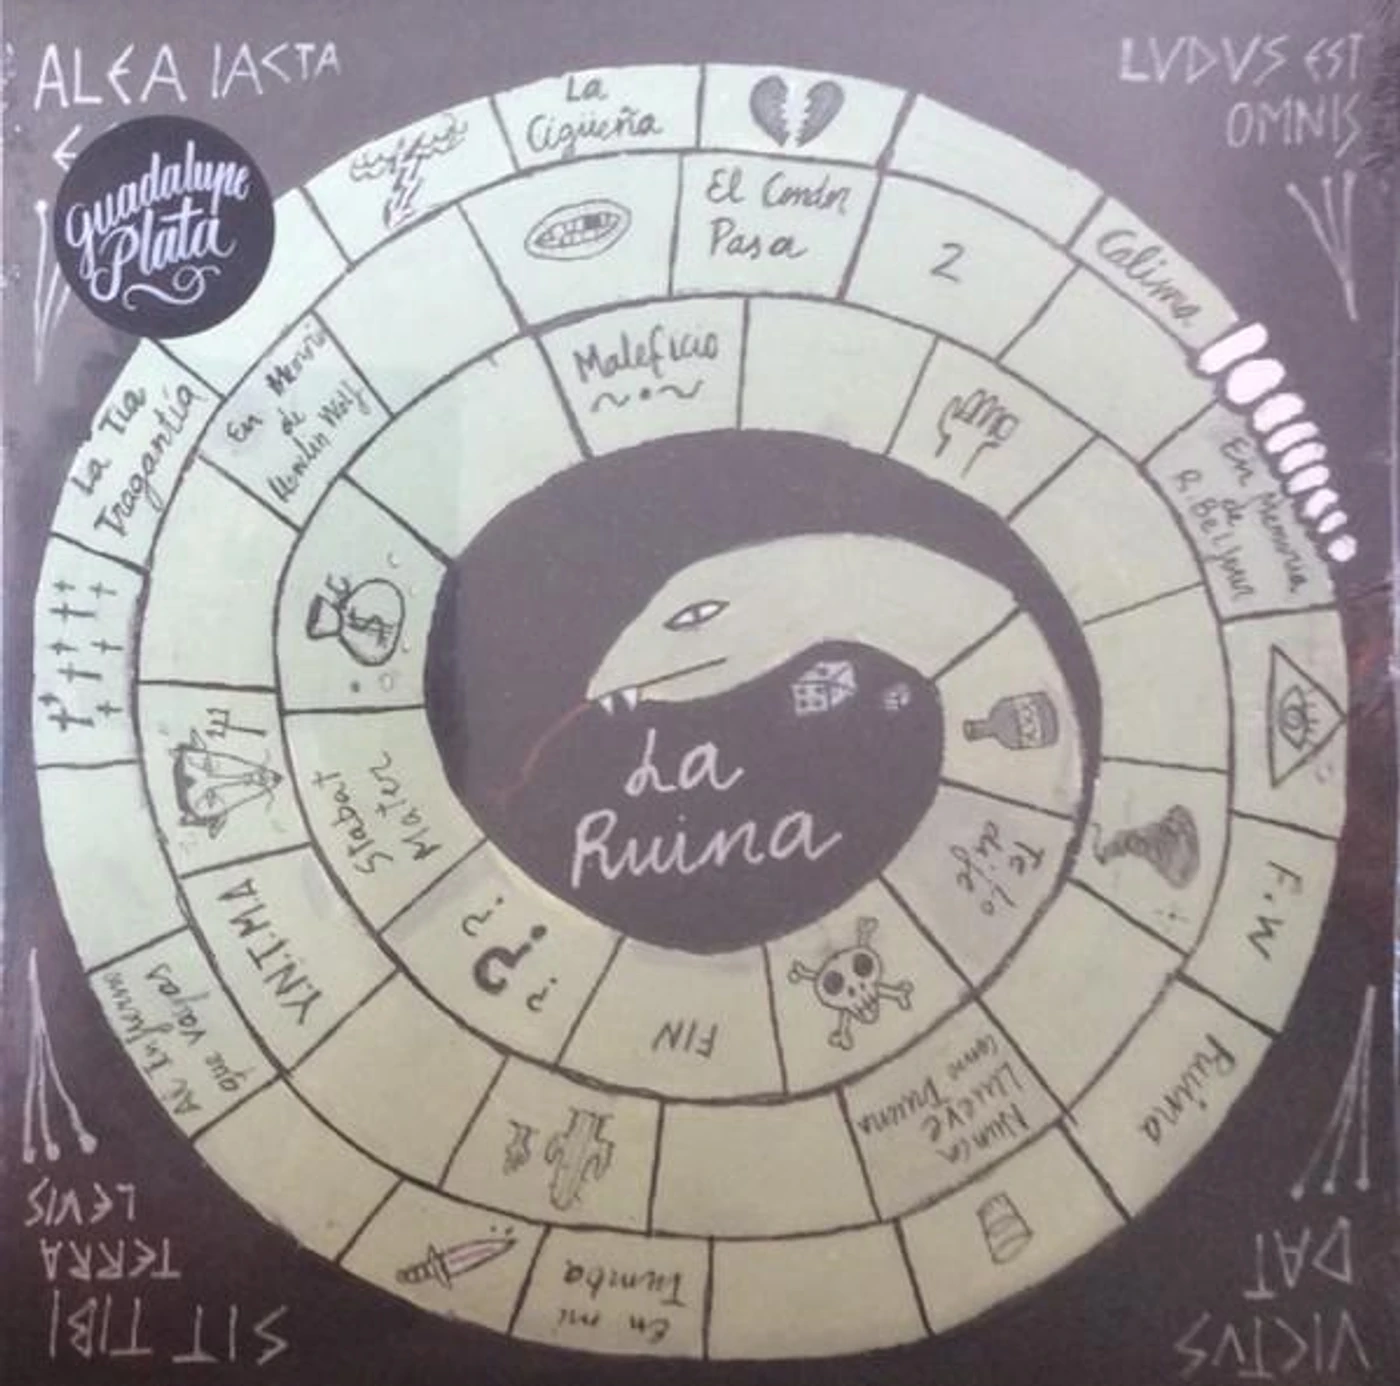 ALEA IACTA
E
LVDVS EST
OMNIS
guadalupe
Plata
La
Cigüeña
El Condor
Pasa
2
Calima
Maleficio
En Memoria
de
La Tía
Tragantía
En Memoria
de
F.W
Ruina
Te lo
dije
Nunca
Llueve
Como Truena
FIN
En mi
Tumba
Al Infierno
que Vayas
Y.N.T.M.A
Stabat
Mater
$
? ? ?
La
Ruina
SIT TIBI
TERRA
LEVIS
VICTVS
DAT